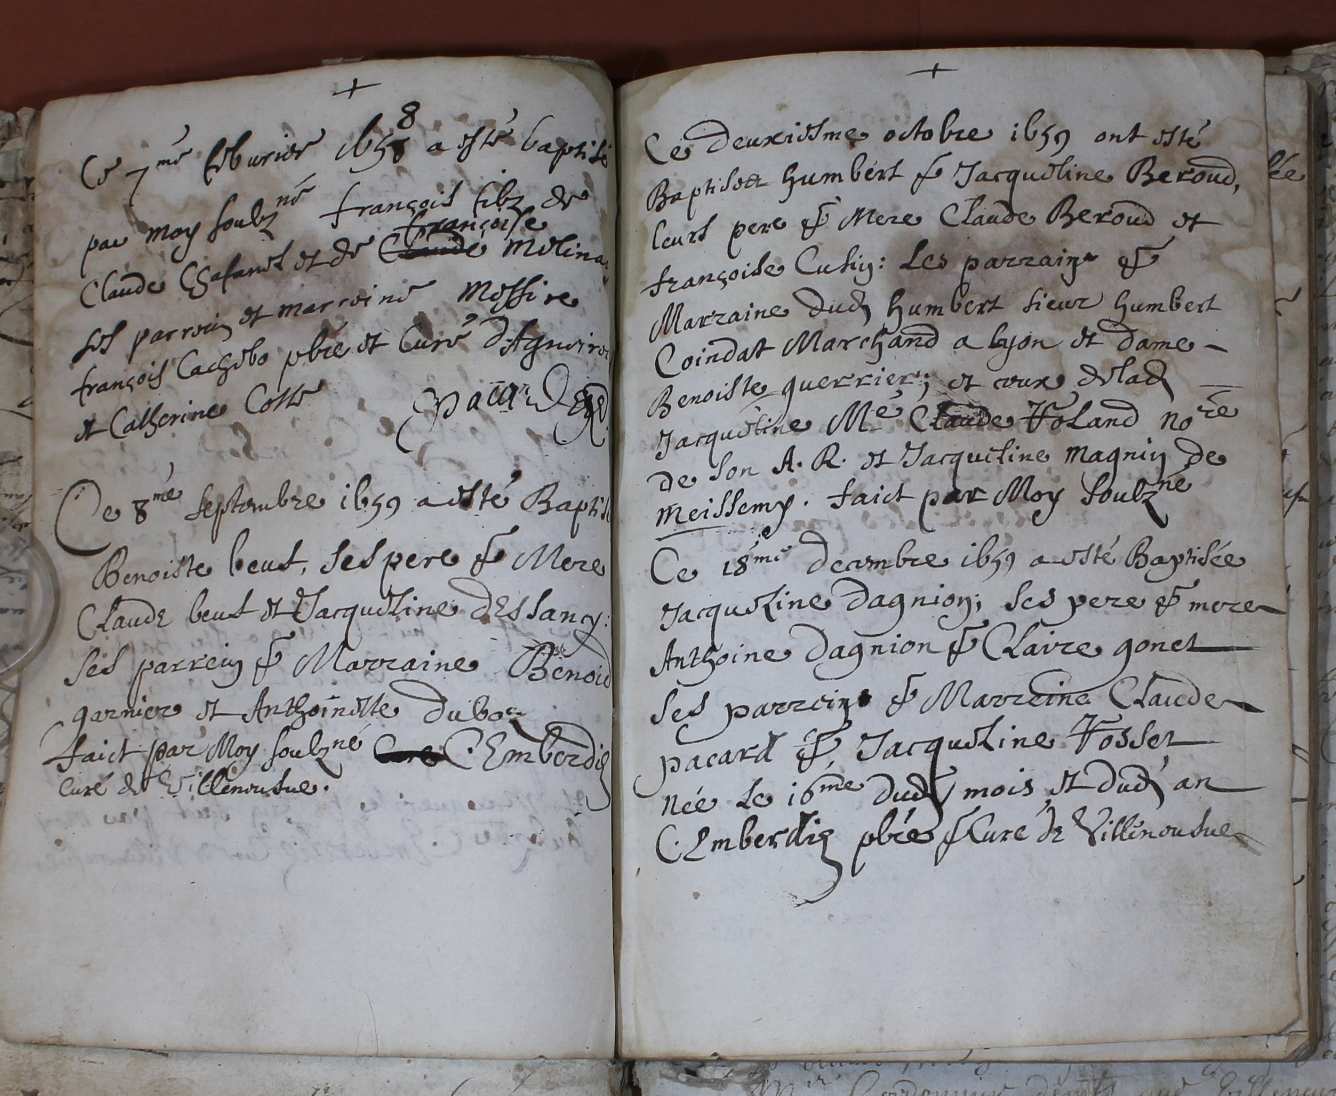 +
Ce 7me febvrier 1658 8 a esté baptisé
par moy soubzné françois filz de
françoise
Claude Chafanel et de Claude Molina
ses parrein et marreine Messire
françois Cachibo pbre et Curé d'Agnire
et Catherine Coste pacard
Ce 8me septembre 1659 a esté Baptisé
Benoiste beuf, ses pere & Mere
Claude beuf et Jacqueline dessancy:
ses parrein & Marraine Benoid
garnier et Anthoinette duboc
faict par Moy soubzné Cure C. Emberdiz
curé de Villenoufue.
+
Ce deuxiesme octobre 1659 ont esté
Baptisez humbert & Jacqueline Beroud,
leurs pere & Mere Claude Beroud et
françoise Cuhiy: Les parrain &
Marraine dud humbert sieur humbert
Coindat Marchand a Lyon et dame
Benoiste guerrier; et ceux delad
Jacqueline Me Claude Voland nore
de son A. R. et Jacqueline magnin de
Meissemy. faict par Moy soubzne
Ce 18me decembre 1659 a esté Baptisée
Jacqueline dagnion; ses pere & mere
Anthoine dagnion & Claire gonet
ses parrein & Marreine Claude
pacard & Jacqueline Vosset
née le 16me dud mois et dud an
C. Emberdiz pbre & Curé de Villenoufue